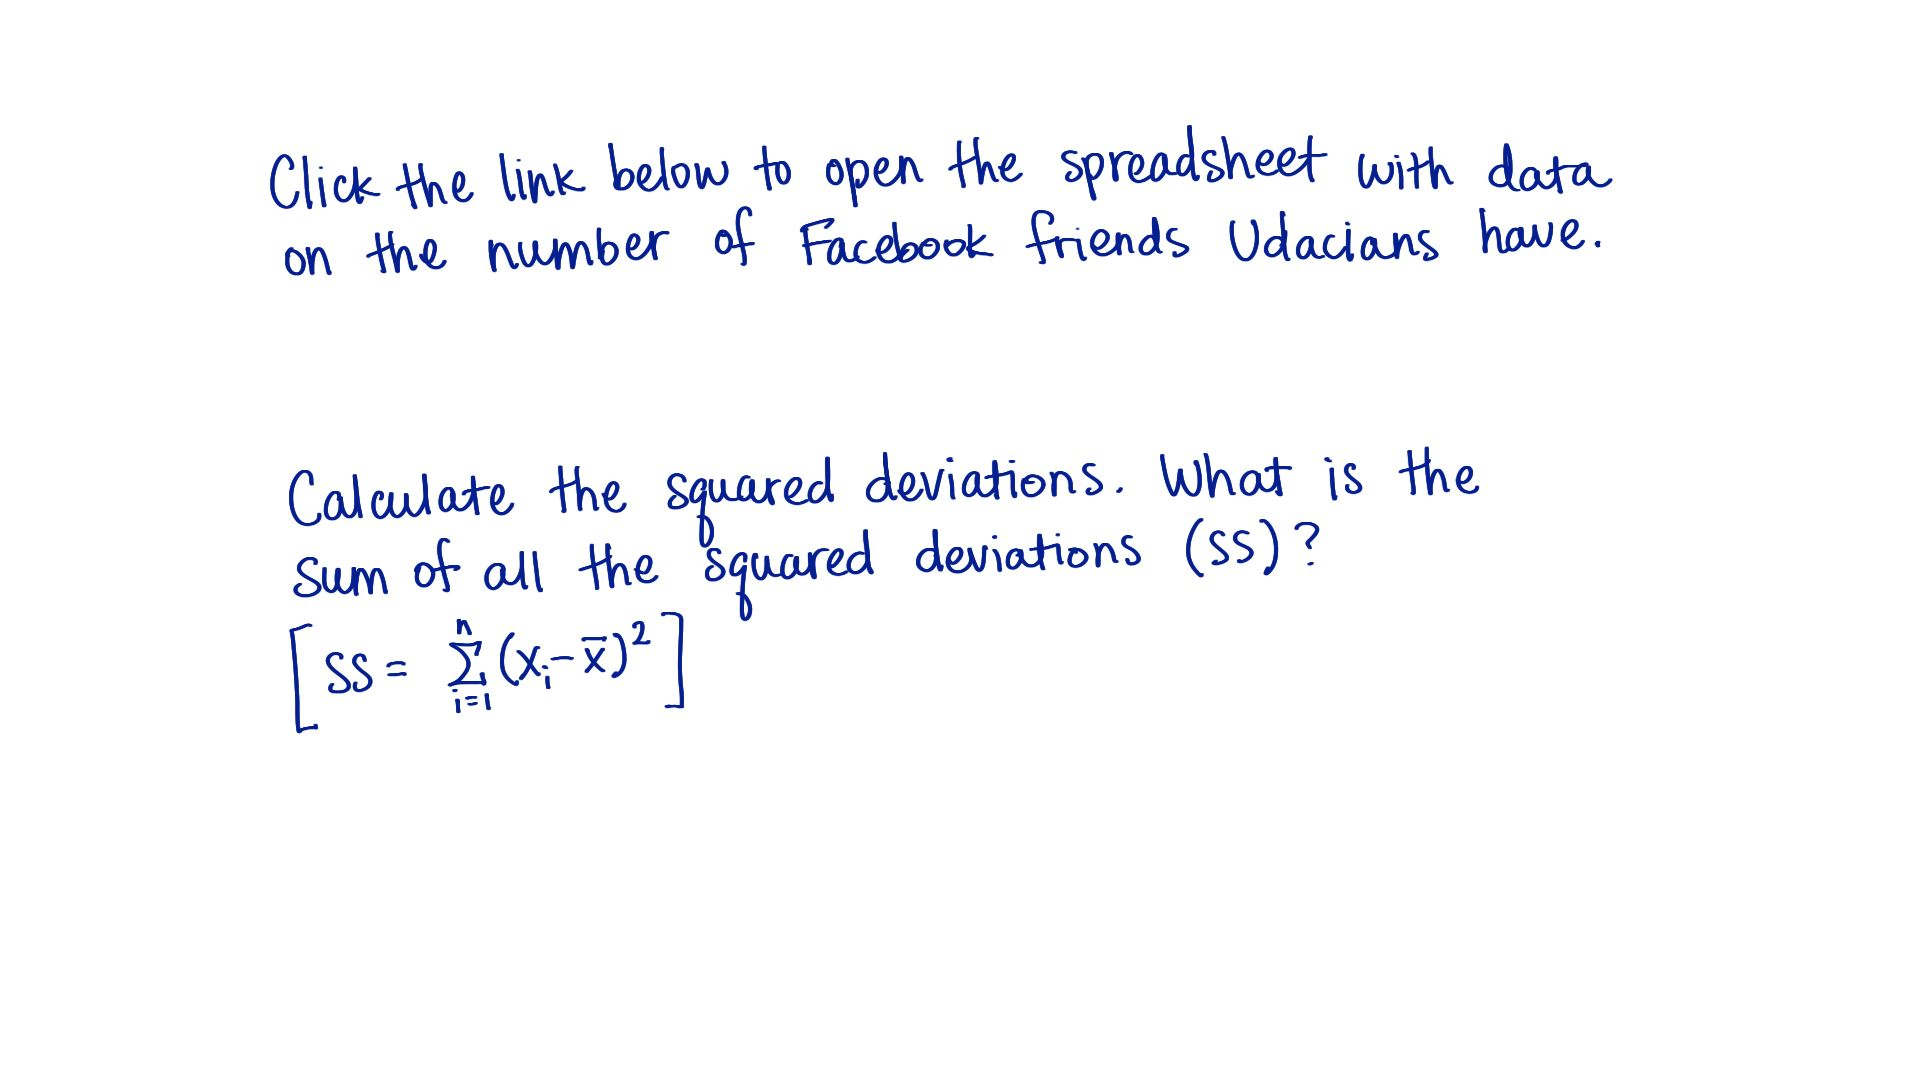 Click the link below to open the spreadsheet with data
on the number of Facebook friends Udacians have.
Calculate the squared deviations. What is the
sum of all the squared deviations (SS)?
[SS = n∑i=1 (xi-x̄)²]